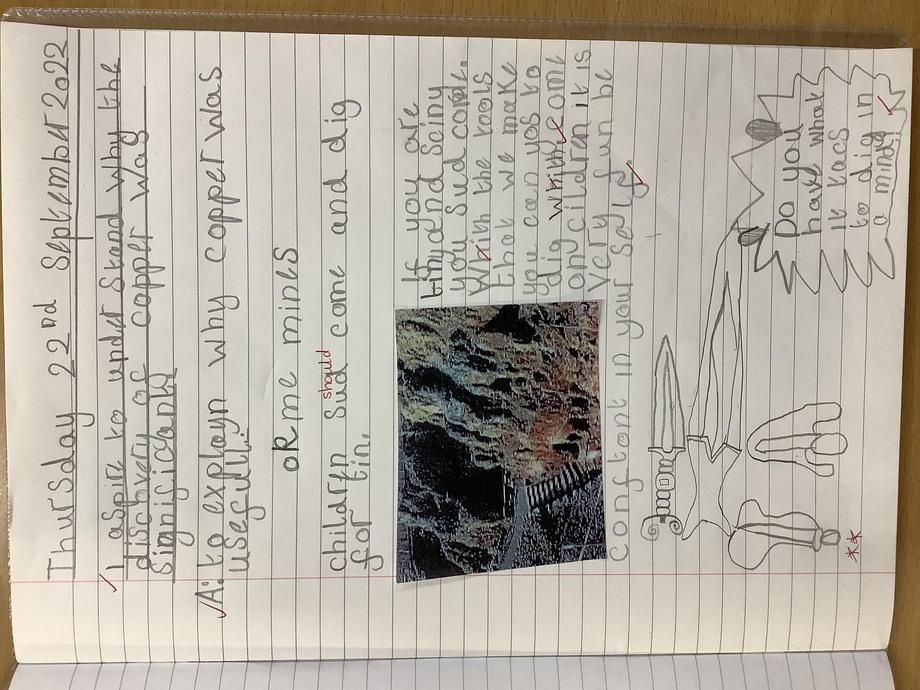 Thursday 22nd September 2022
I aspire to understand why the
discovery of copper was
signisicant
A: to explayn why copper was
useful.
oRme mines
should
children Sud come and dig
for tin.
If you are
tinyand Sainy
you Sud come.
With the tools
that we make
you can yos to
dig with. come
on children it is
very fun be
confont in your self
Do you
have what
it tacs
to dig in
a mind!